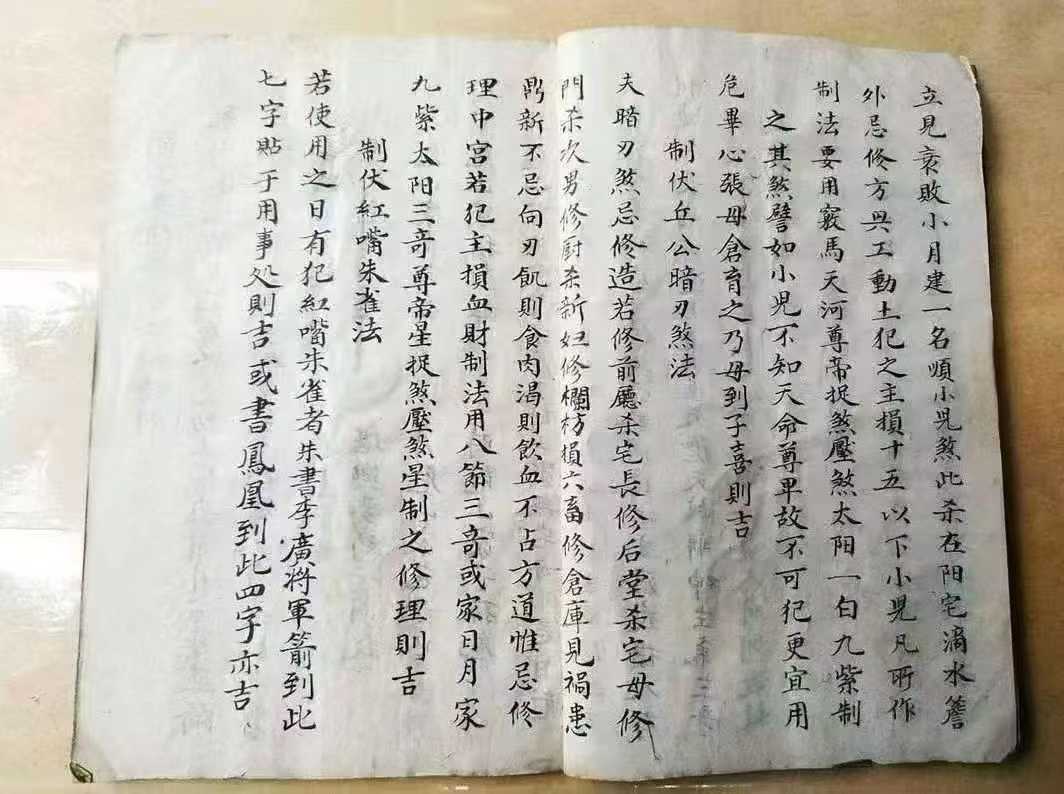 立見衰敗小月建一名順小児煞此杀在阳宅滴水簷
外忌修方與工動土犯之主損十五以下小児凡所作
制法要用竅馬天河尊帝捉煞壓煞太阳一白九紫制
之其煞譬如小児不知天命尊卑故不可犯更宜用
危畢心張母倉育之乃母到子喜則吉
制伏丘公暗刃煞法
夫暗刃煞忌修造若修前廳杀宅長修后堂杀宅母修
門杀次男修厨杀新妇修欄枋損六畜修倉庫見禍患
鼎新不忌向刃飢則食肉渴則飲血不占方道惟忌修
理中宮若犯主損血財制法用八節三奇或家日月家
九紫太阳三奇尊帝星捉煞壓煞星制之修理則吉
制伏紅嘴朱雀法
若使用之日有犯紅嘴朱雀者朱書李廣将軍箭到此
七字貼于用事処則吉或書鳳凰到此四字亦吉